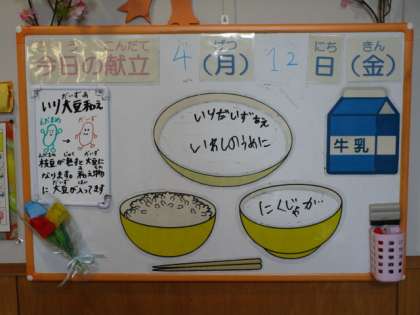 きょう こんだて げつ にち きん
今日の献立 4(月) 12日(金)
いりだいずあえ
いわしのうめに
にくじゃが
牛乳
だいず あ
いり大豆和え
えだまめ だいず
えだまめ じゅく だいず
枝豆が熟すと大豆に
なります。和え物
に大豆が入ってます